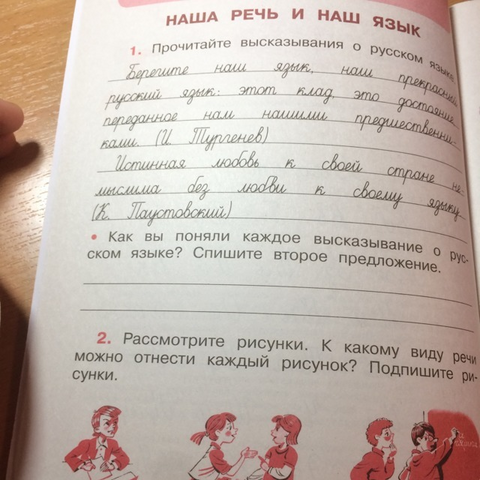 НАША РЕЧЬ И НАШ ЯЗЫК
1. Прочитайте высказывания о русском языке.
Берегите наш язык, наш прекрасный
русский язык: этот клад, это достояние,
переданное нам нашими предшественни-
ками. (И. Тургенев)
Истинная любовь к своей стране не-
мыслима без любви к своему языку.
(К. Паустовский)
• Как вы поняли каждое высказывание о рус-
ском языке? Спишите второе предложение.
2. Рассмотрите рисунки. К какому виду речи
можно отнести каждый рисунок? Подпишите ри-
сунки.